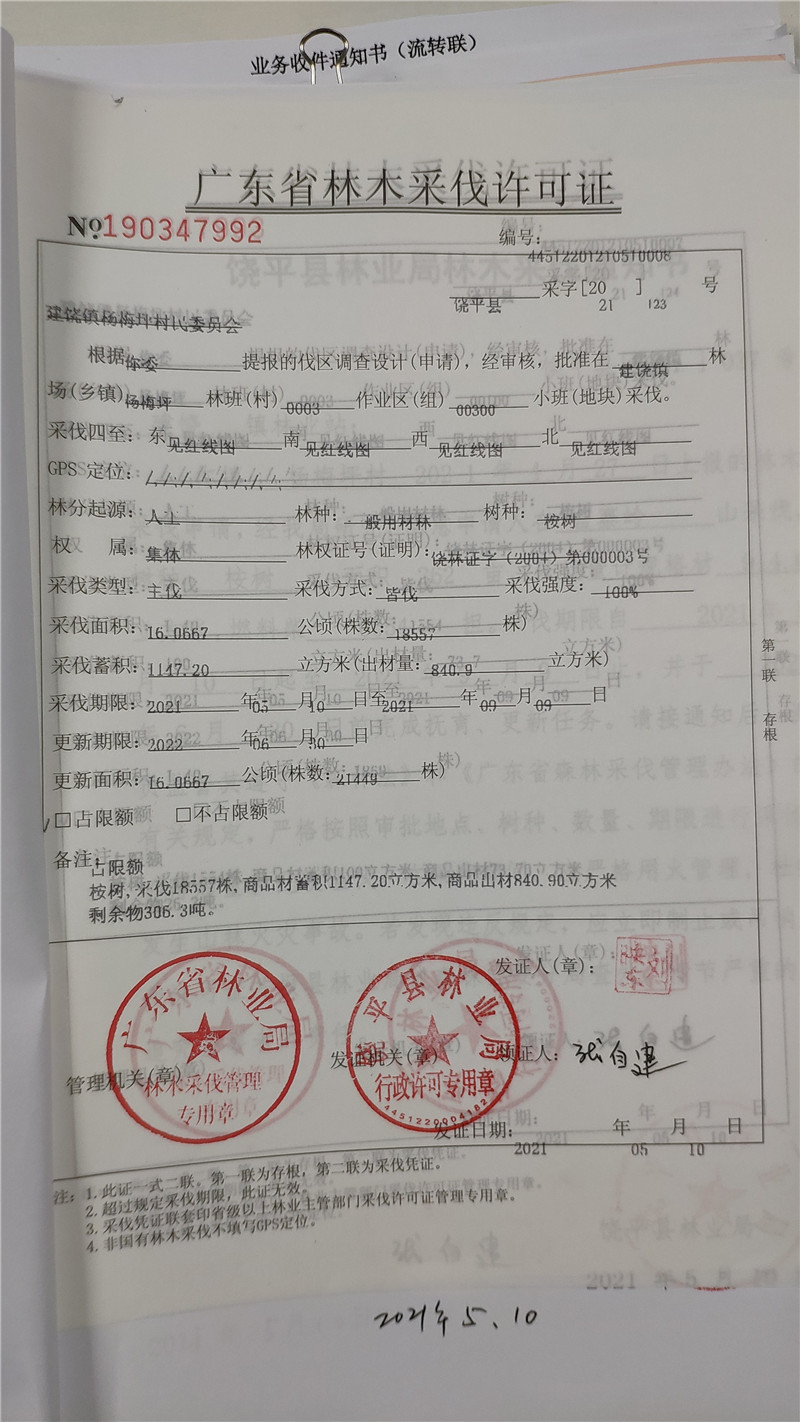 业务收件通知书（流转联）
广东省林木采伐许可证
№190347992
编号：
44512201210510008
饶平县 采字[20 21 ] 123 号
建饶镇杨梅坪村民委员会
根据 你委 提报的伐区调查设计(申请)，经审核，批准在 建饶镇 林
场(乡镇) 杨梅坪 林班(村) 0003 作业区(组) 00300 小班(地块)采伐。
采伐四至：东 见红线图 南 见红线图 西 见红线图 北 见红线图
GPS 定位：/./././././././.
林分起源：人工 林种：一般用材林 树种：桉树
权 属：集体 林权证号(证明)：饶林证字（2004）第000003号
采伐类型：主伐 采伐方式：皆伐 采伐强度：100%
采伐面积：16.0667 公顷(株数：18557 株)
采伐蓄积：1147.20 立方米(出材量：840.9 立方米)
采伐期限：2021 年 05 月 10 日至 2021 年 09 月 09 日
更新期限：2022 年 06 月 30 日
更新面积：16.0667 公顷(株数：21449 株)
√□占限额 □不占限额
备注：占限额
桉树,采伐18557株,商品材蓄积1147.20立方米,商品出材840.90立方米
剩余物306.3吨。
第一联 存根
发证人(章)：
管理机关(章)
广东省林业局
林木采伐管理
专用章
发证机关(章)
饶平县林业局
行政许可专用章
领证人：张自建
发证日期： 2021 年 05 月 10 日
注：1.此证一式二联。第一联为存根，第二联为采伐凭证。
2.超过规定采伐期限，此证无效。
3.采伐凭证联套印省级以上林业主管部门采伐许可证管理专用章。
4.非国有林木采伐不填写GPS定位。
2021年5.10